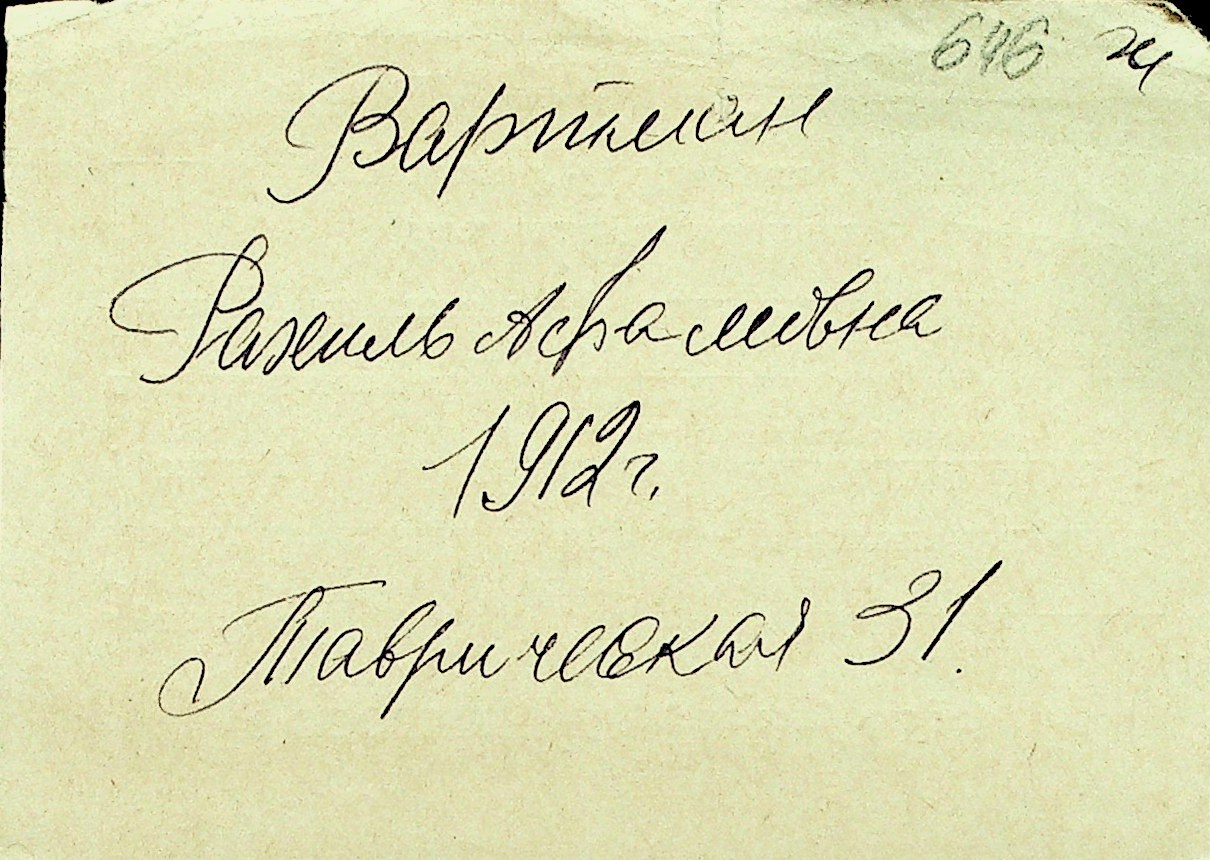 646 ж
Вартман
Рахиль Афрамовна
1912 г.
Таврическая 31.